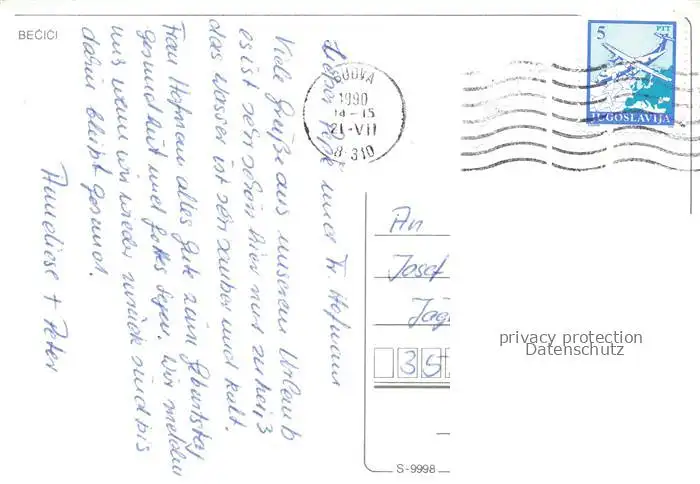 BEČIĆI
Lieber Pepe und Fr. Hofmann
Viele Grüße aus unserem Urlaub
es ist sehr schön hier nur zu heiß
das Wasser ist sehr sauber und kalt.
Frau Hofman alles Gute zum Geburtstag
Gesundheit und Gottes Segen. Wir melden
uns wenn wir wieder zurück sind bis
dahin bleibt gesund.
Anneliese + Peter
BUDVA
1990
14-15
21-VII
8-310
5
PTT
JUGOSLAVIJA
An
Josef
Jäg
35
privacy protection
Datenschutz
S-9998